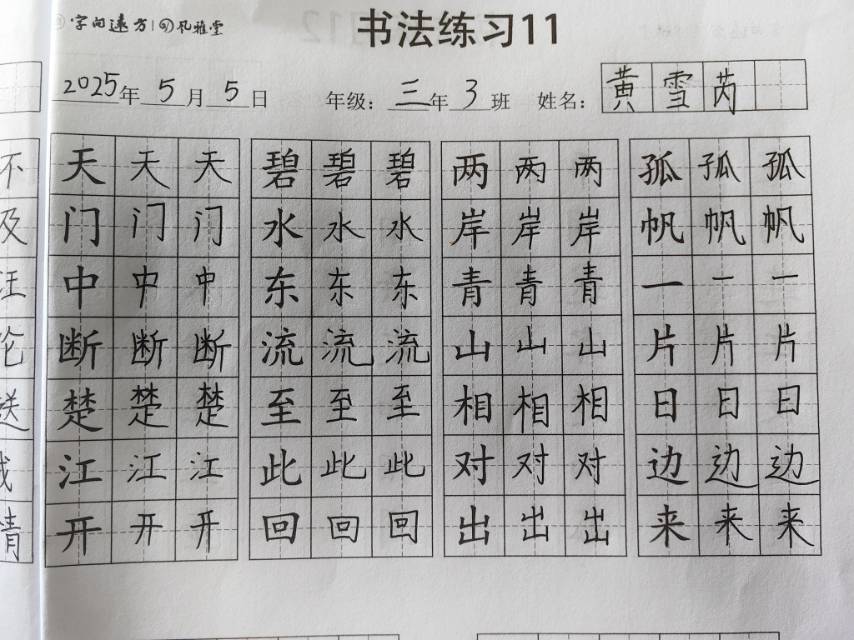 字向远方 | 孔雅堂
书法练习11
2025年5月5日 年级：三年3班 姓名：黄雪芮
天天天 碧碧碧 两两两 孤孤孤
门门门 水水水 岸岸岸 帆帆帆
中中中 东东东 青青青 一一一
断断断 流流流 山山山 片片片
楚楚楚 至至至 相相相 日日日
江江江 此此此 对对对 边边边
开开开 回回回 出出出 来来来
不
及
汪
伦
送
情